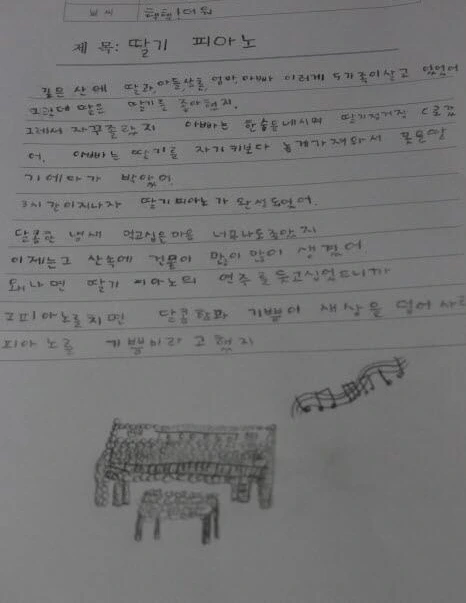 날씨
제 목: 딸기 피아노
깊은 산에 딸과, 아들 엄마, 아빠 이렇게 5가족이 살고 있었어
딸은 딸기를 좋아했지.
그래서 자꾸 졸랐지 아빠는 한숨을 내시며 딸기 으로 갔
어. 아빠는 딸기를 자기 키보다 높게 가져와서
기에다가 박았어.
3시간이 지나자 딸기 피아노가 완성되었어.
달콤한 냄새 먹고싶은 마음 너무나도 좋았지
이제는 그 산속에 건물이 많이 많이 생겼어
왜냐면 딸기 피아노의 연주를 듣고싶었으니까
그 피아노를 치면 달콤함과 기쁨이 새상을 덮어 사
피아노를 기쁨이라고 했지